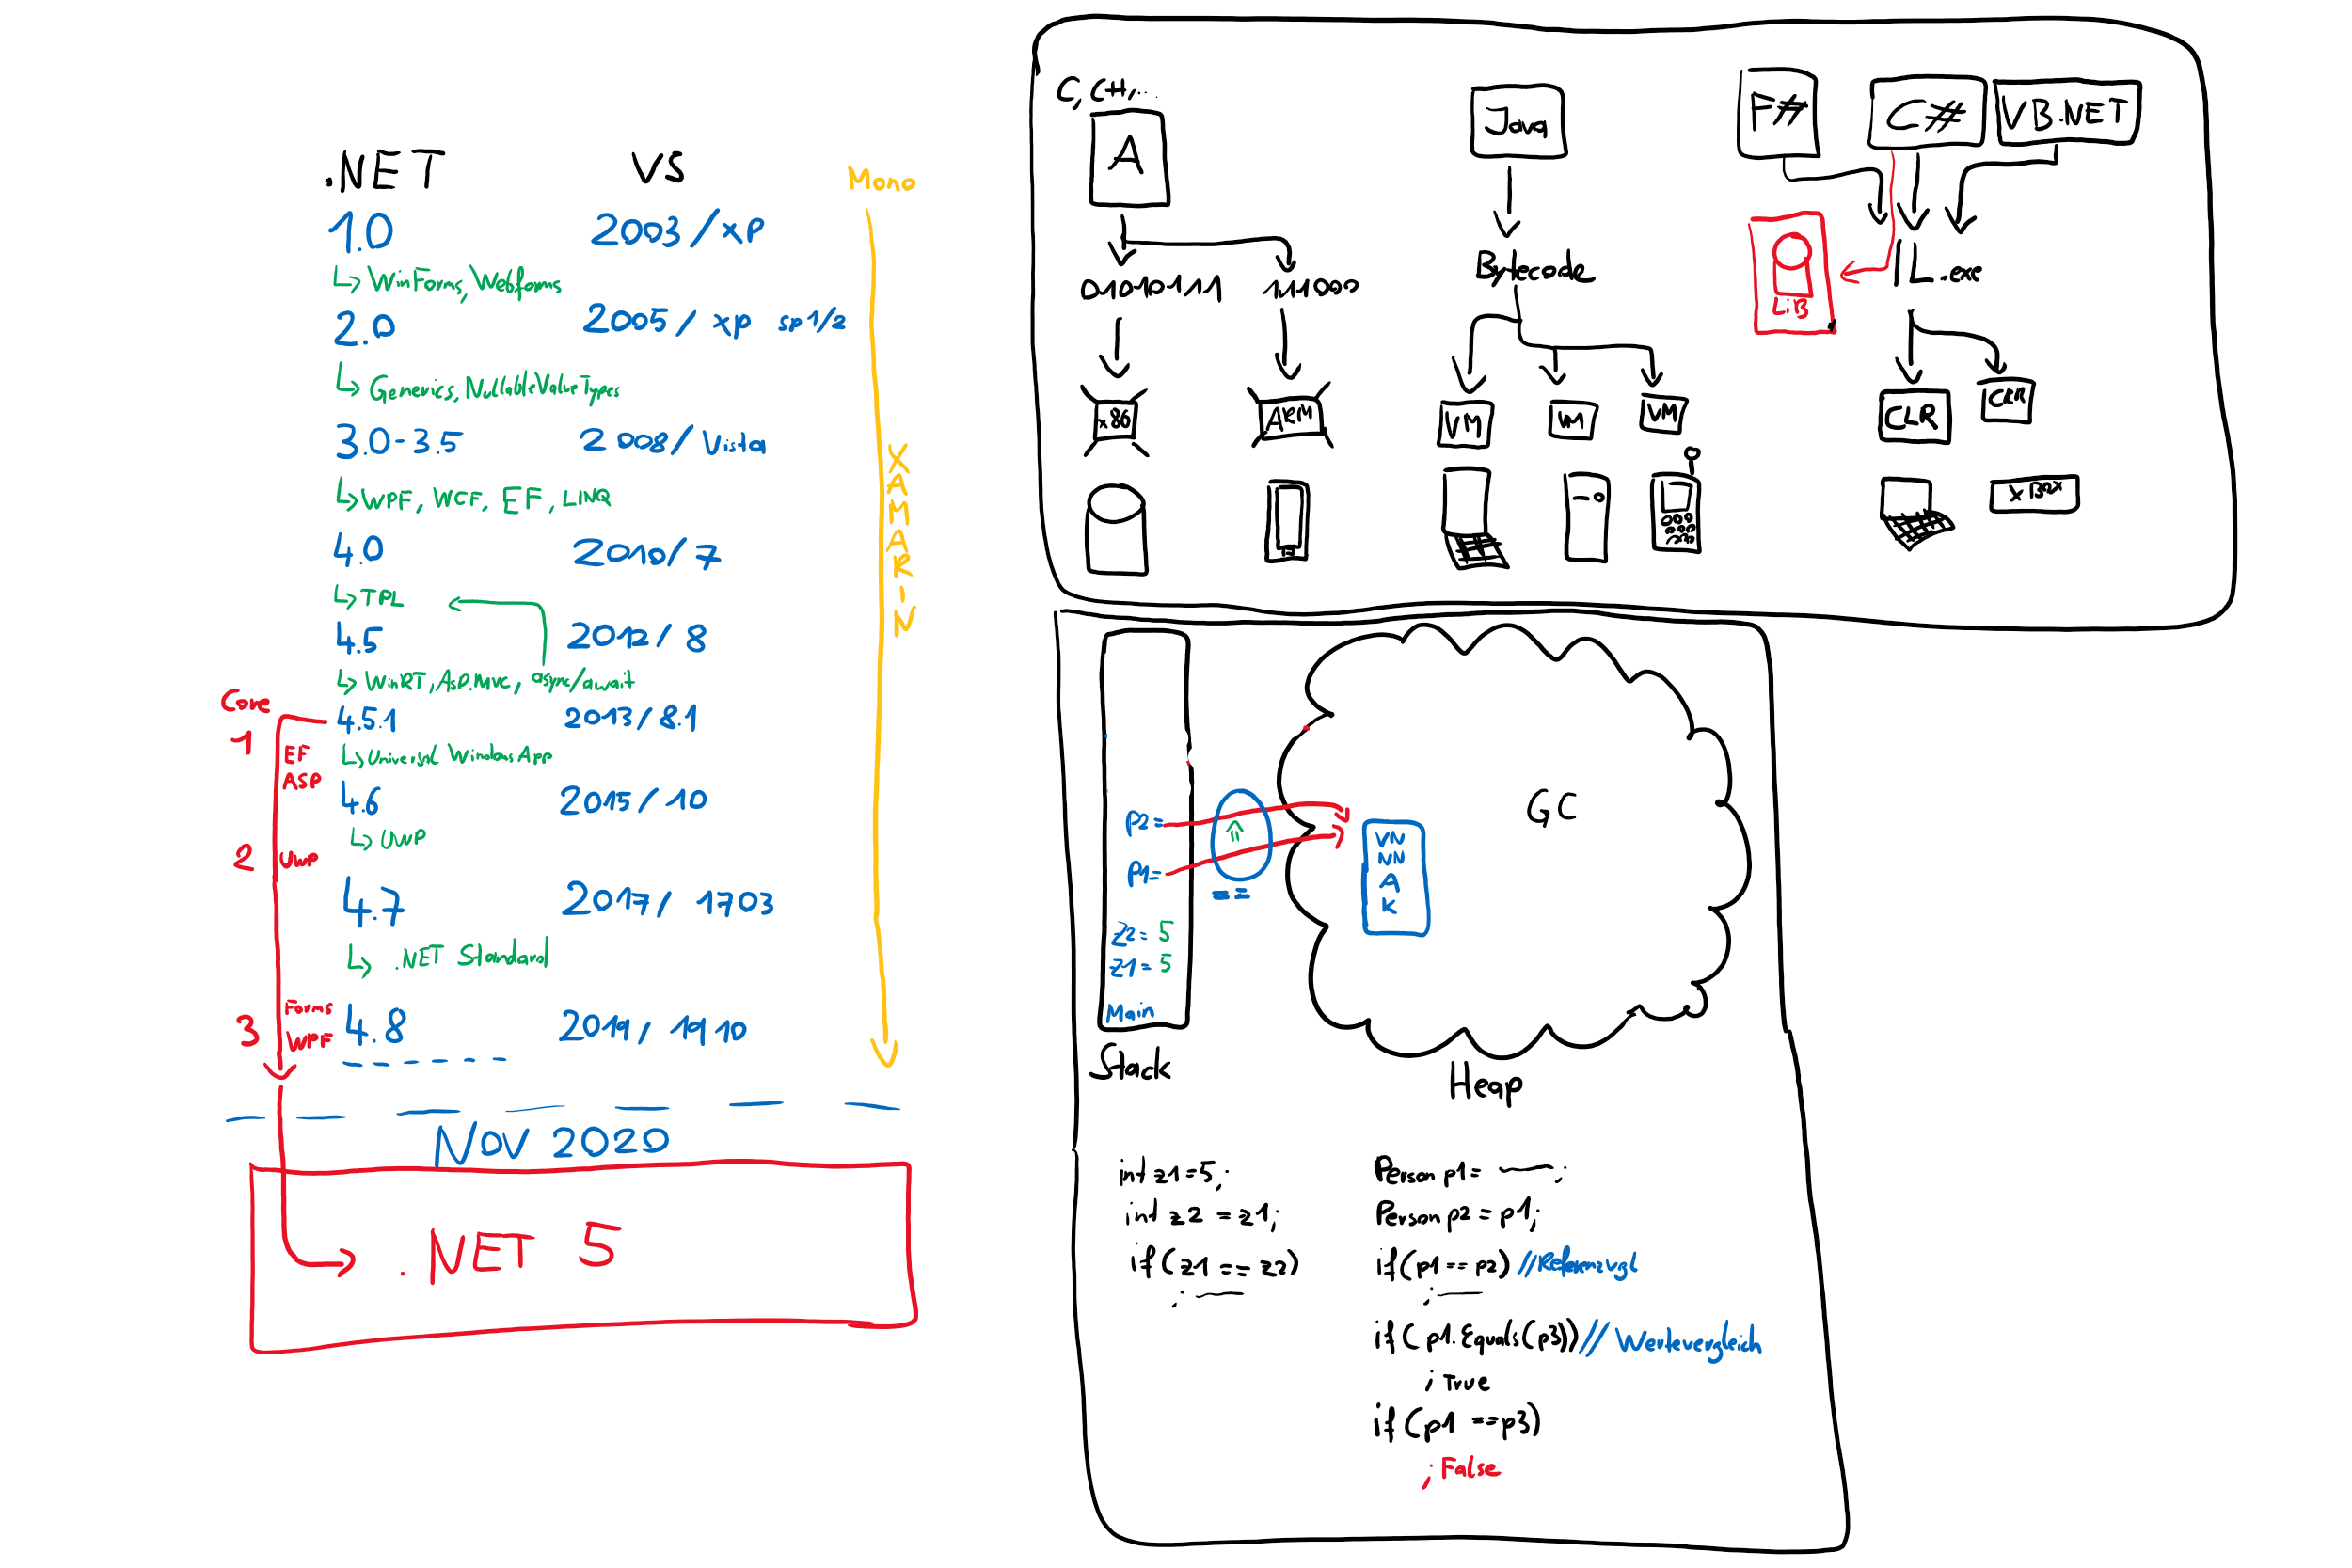 .NET VS Mono
1.0 2003/XP
↳ WinForms, Webforms
2.0 2005/ XP SP1/2
↳ Generics, NullableValueTypes
3.0-3.5 2008/ Vista
↳ WPF, WCF, EF, LINQ
4.0 2010/ 7
↳ TPL
4.5 2012/ 8
↳ WinRT, Asp.MVC, async/await
4.5.1 2013/ 8.1
↳ Universal Windows App
4.6 2015/ 10
↳ UWP
4.7 2017/ 1703
↳ .NET Standard
4.8 2019/ 1910
XAMARIN
Core
1
EF
ASP
2 UWP
3
Forms
WPF
NOV 2020
.NET 5
C, C++,...
A
01010111 111000
x86 ARM
Java
Bytecode
VM VM VM
F# C# VB.NET
LiB
IL.exe
CLR CLR
XBOX
P2=
P1=
==
Z2= 5
Z1= 5
Main
Stack
VN
NN
A
K
GC
Heap
int z1=5;
int z2 = z1;
if(z1 == z2)
;
Person p1= ;
Person p2 = p1;
if(p1 == p2) //Referenzvgl
;
if(p1.Equals(p3)) // Wertevergleich
; True
if(p1 ==p3)
; False